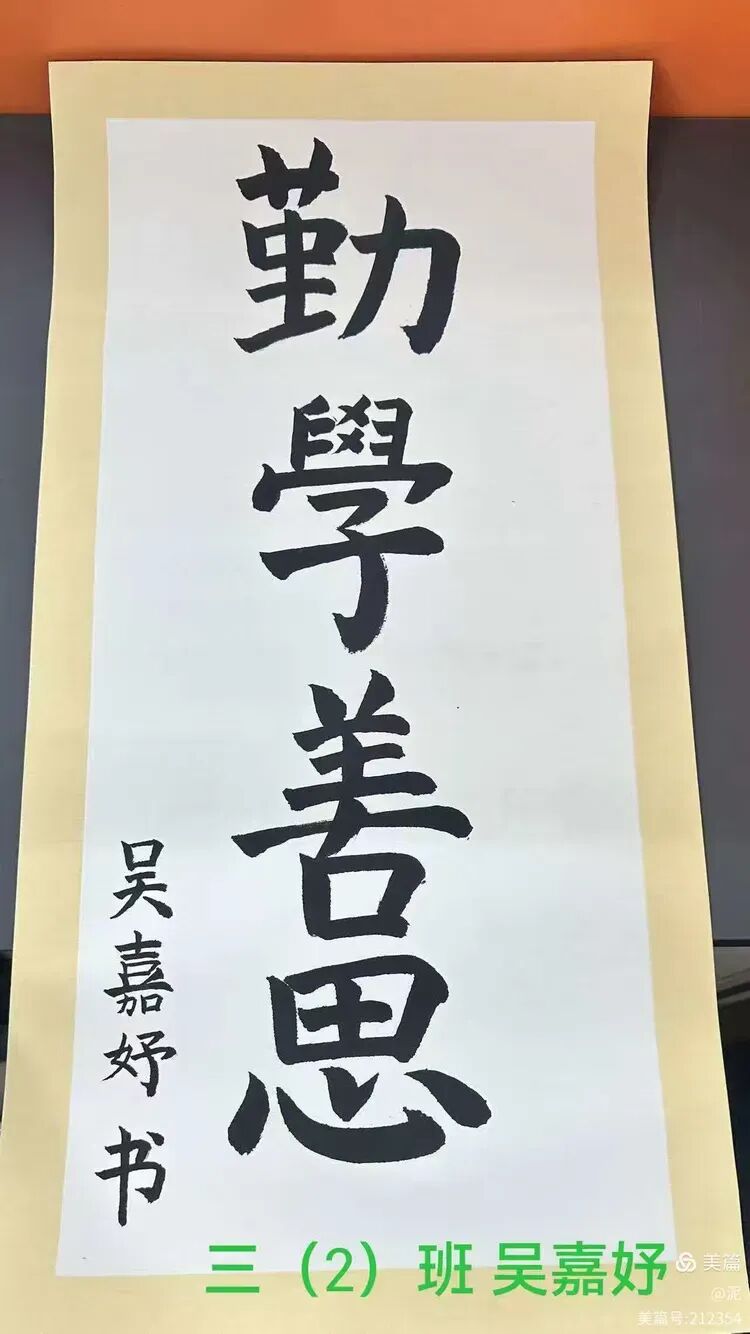 勤學善思
吴嘉妤书
三（2）班 吴嘉妤
美篇
@泥
美篇号:212354